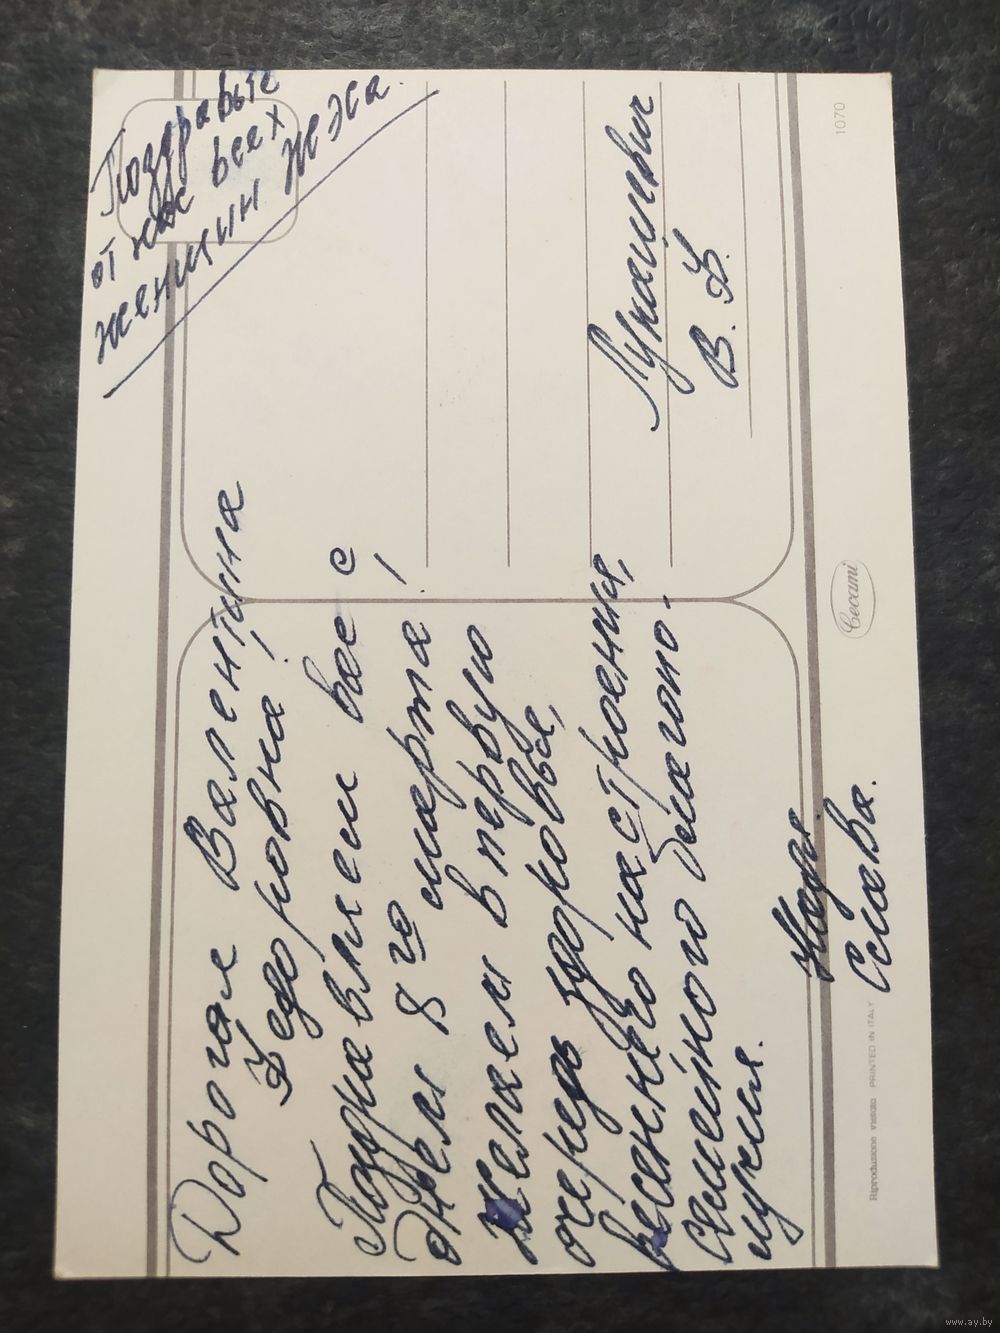 Дорогая Валентина
Федоровна!
Поздравляем вас с
днем 8го марта,
желаем в первую
очередь здоровья,
весеннего настроения,
семейного благопо-
лучия.
Надя.
Слава.
Поздравьте
от нас всех
женщин ЖЭСа.
Лукашевич
В. Ф.
1070
Cecami
Riproduzione vietata PRINTED IN ITALY
www.ay.by